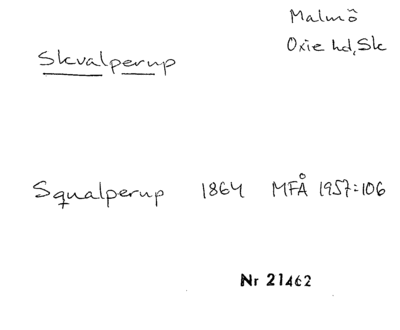 Malmö
Oxie hd, Sk
Skvalperup
Squalperup 1864 MFÅ 1957:106
Nr 21462